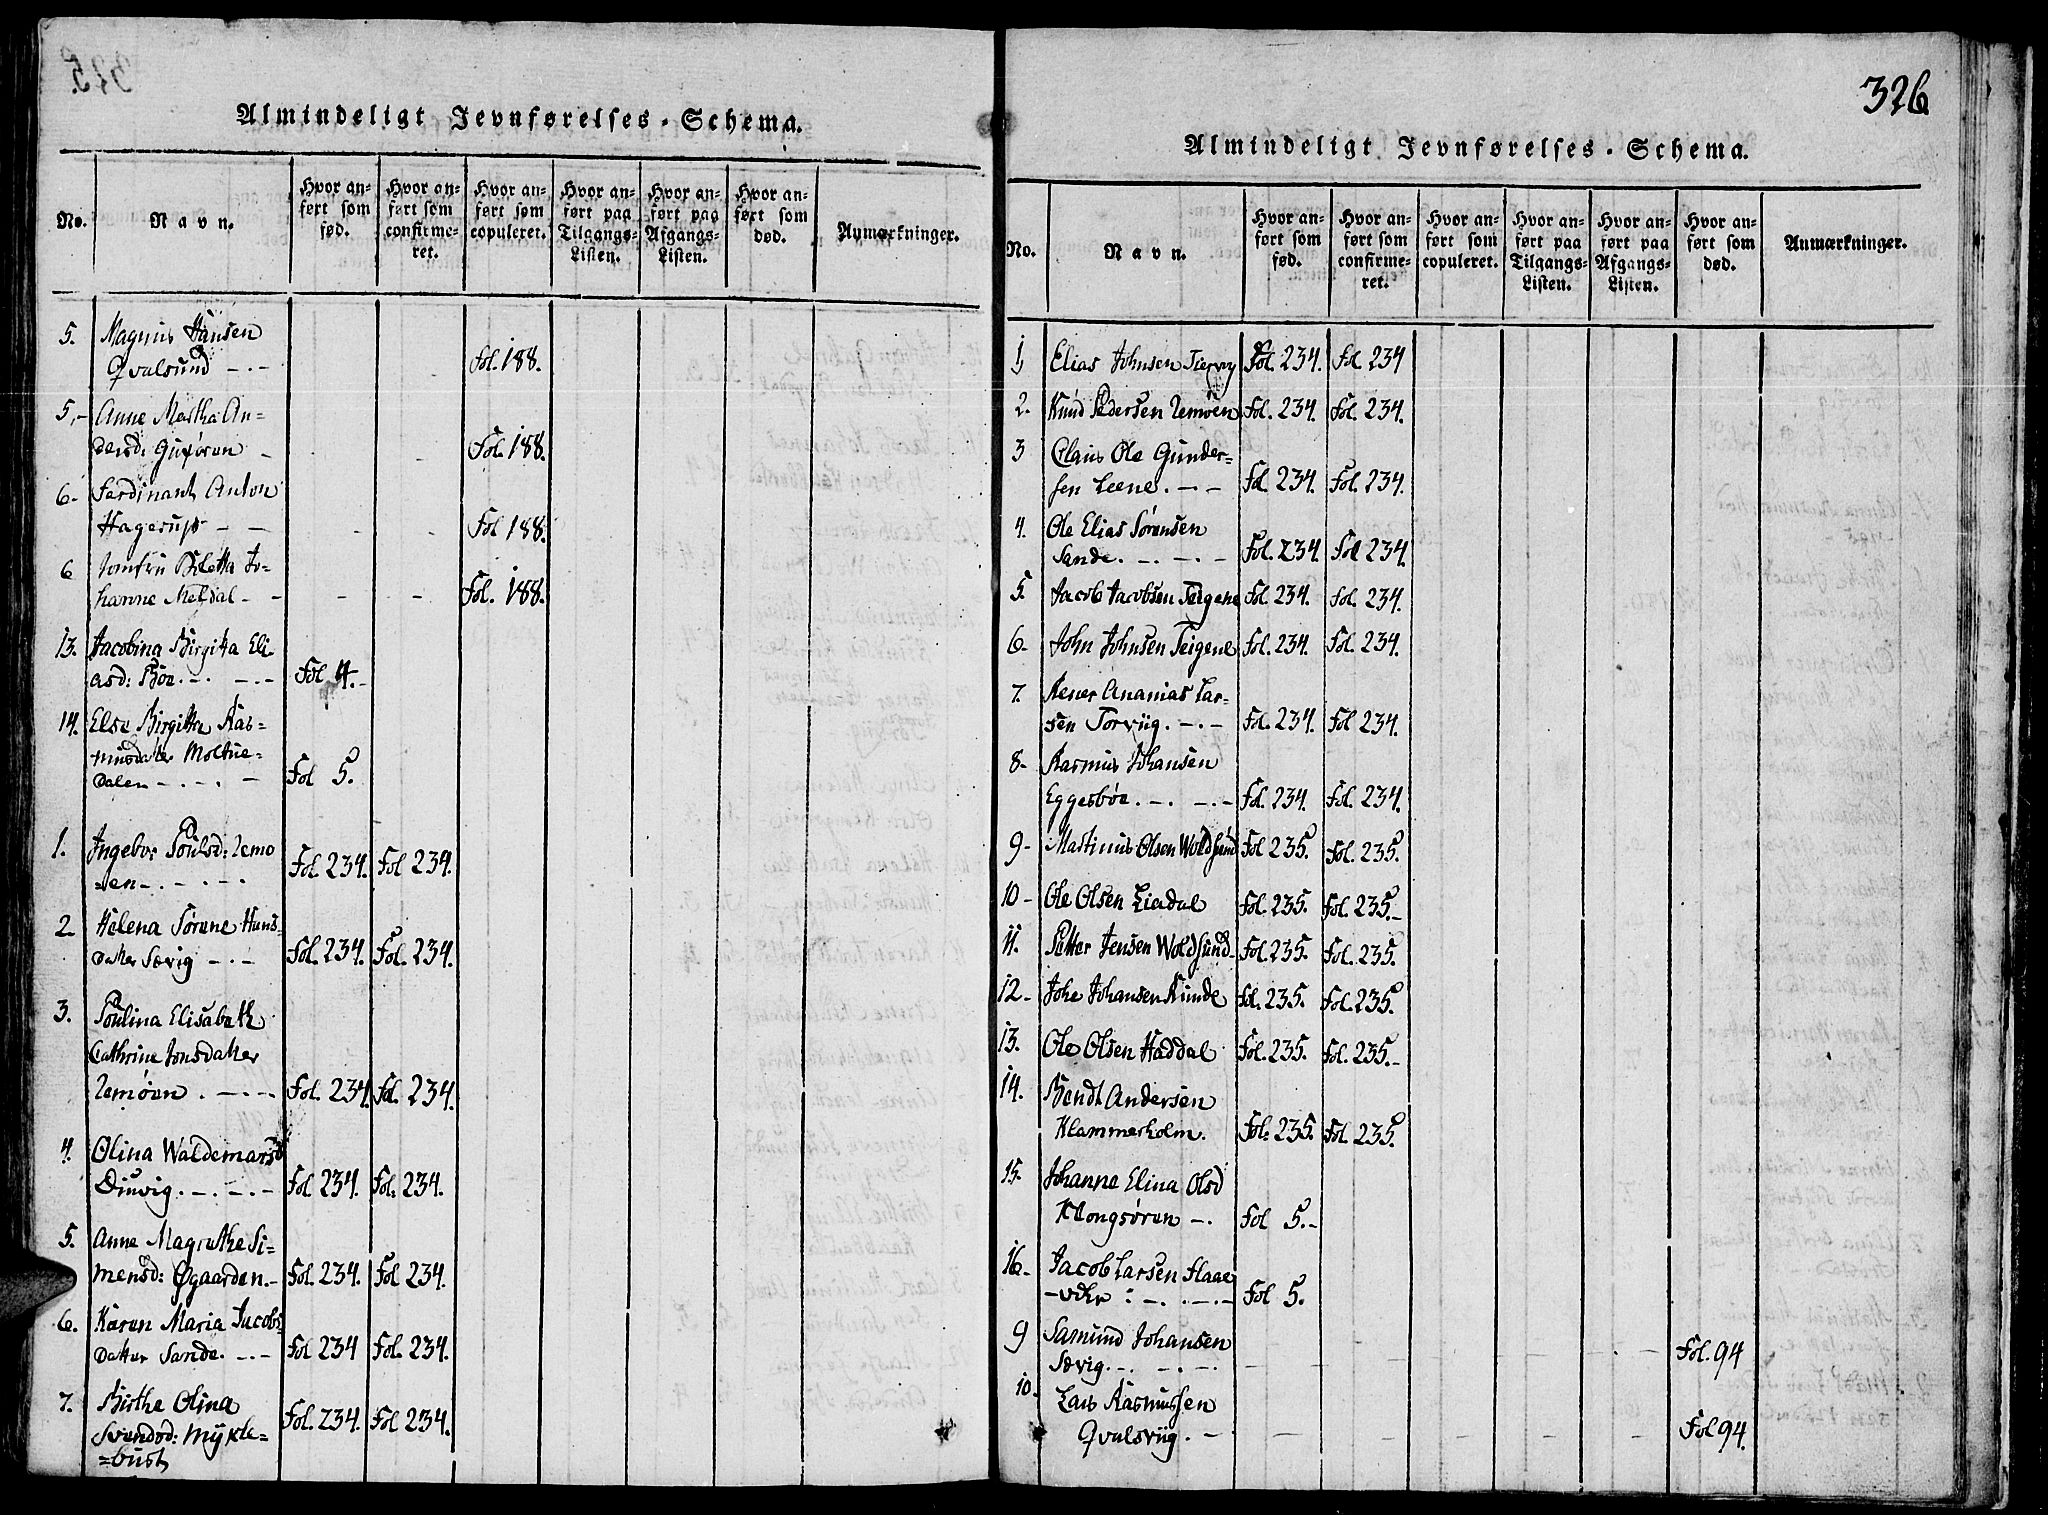 Almindeligt Jevnførelses-Schema.
No.
Navn.
Hvor anført som fød.
Hvor anført som confirmeret.
Hvor anført som copuleret.
Hvor anført paa Tilgangs-Listen.
Hvor anført paa Afgangs-Listen.
Hvor anført som død.
Anmærkninger.
5. Magnus Hansen
Qvalsund -.- Fol. 188.
5,- Anne Martha An=
dersd: - Fol. 188.
6- Ferdinant Anton
Hagerup - - Fol 188.
6 Jomfru Boletta Jo-
hanne Meldal - - - - Fol. 188.
13. Jacobina Birgitta Eli
asd: Böe.-. -.- Fol 4.-
14. Else Birgitta Ras-
musdatter Moltue-
dalen -.-.- - Fol 5.
1. Ingebor Poulsd: Remo
en-.-.-.- Fol 234. Fol 234.
2. Helena Sørine Hans-
datter Sævig -.- Fol. 234. Fol. 234.
3. Poulina Elisabeth
Cathrine Jonsdatter
Remøen .-.-. Fol. 234. Fol. 234.
4. Olina Waldemarsd
Dinvig.-.-.- Fol 234. Fol: 234.
5. Anne Magrethe Si-
mensd: Øgaarden.- Fol. 234. Fol 234.
6. Karen Maria Jacobs-
datter Sande.-.- Fol 234 Fol. 234.
7. Birthe Olina
Svendsd: Mykle=
=bust Fol. 234. Fol 234.
326
Almindeligt Jevnførelses-Schema.
No.
Navn.
Hvor anført som fød.
Hvor anført som confirmeret.
Hvor anført som copuleret.
Hvor anført paa Tilgangs-Listen.
Hvor anført paa Afgangs-Listen.
Hvor anført som død.
Anmærkninger.
1, Elias Johnsen Fol. 234. Fol 234
2. Knud Pedersen Remøen Fol. 234. Fol. 234.
3 Claus Ole Gunder-
sen Leene.-.- Fol 234. Fol. 234.
4. Ole Elias Sørensen
Sande.-.-.- Fol. 234. Fol 234.
5. Jacob Jacobsen Teigene Fol. 234. Fol. 234.
6- John Johnsen Teigene Fol. 234. Fol. 234.
7. Rener Ananias Lar-
sen Torviig.-.- Fol. 234. Fol 234.
8- Rasmus Johansen
Eggesbøe.-. -.- Fol. 234. Fol. 234.
9- Martinus Olsen Woldsund Fol 235. Fol. 235.
10- Ole Olsen Liadal Fol. 235. Fol. 235.-
11. Petter Jensen Woldsund- Fol 235. Fol. 235.
12- Johe Johansen Runde Fol. 235. Fol. 235.
13. Ole Olsen Haddal Fol. 235. Fol. 235.-
14. Bendt Andersen
Klammerholm. Fol: 235. Fol 235.
15. Johanne Elina Olsd
Klongsøren -. Fol 5.-
16- Jacob Larsen Flaae
Fol 5.
9 Samund Johansen
Sævig.-. -.-. Fol. 94
10. Lars Rasmussen
Qvalsviig.- - Fol 94.